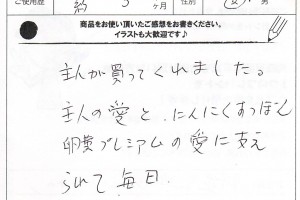 ご使用歴 約 3 ヶ月 性別 女・男
商品をお使い頂いたご感想をお書きください。
イラストも大歓迎です♪
主人が買ってくれました。
主人の愛と、にんにくすっぽん
卵黄プレミアムの愛に支え
られて毎日、